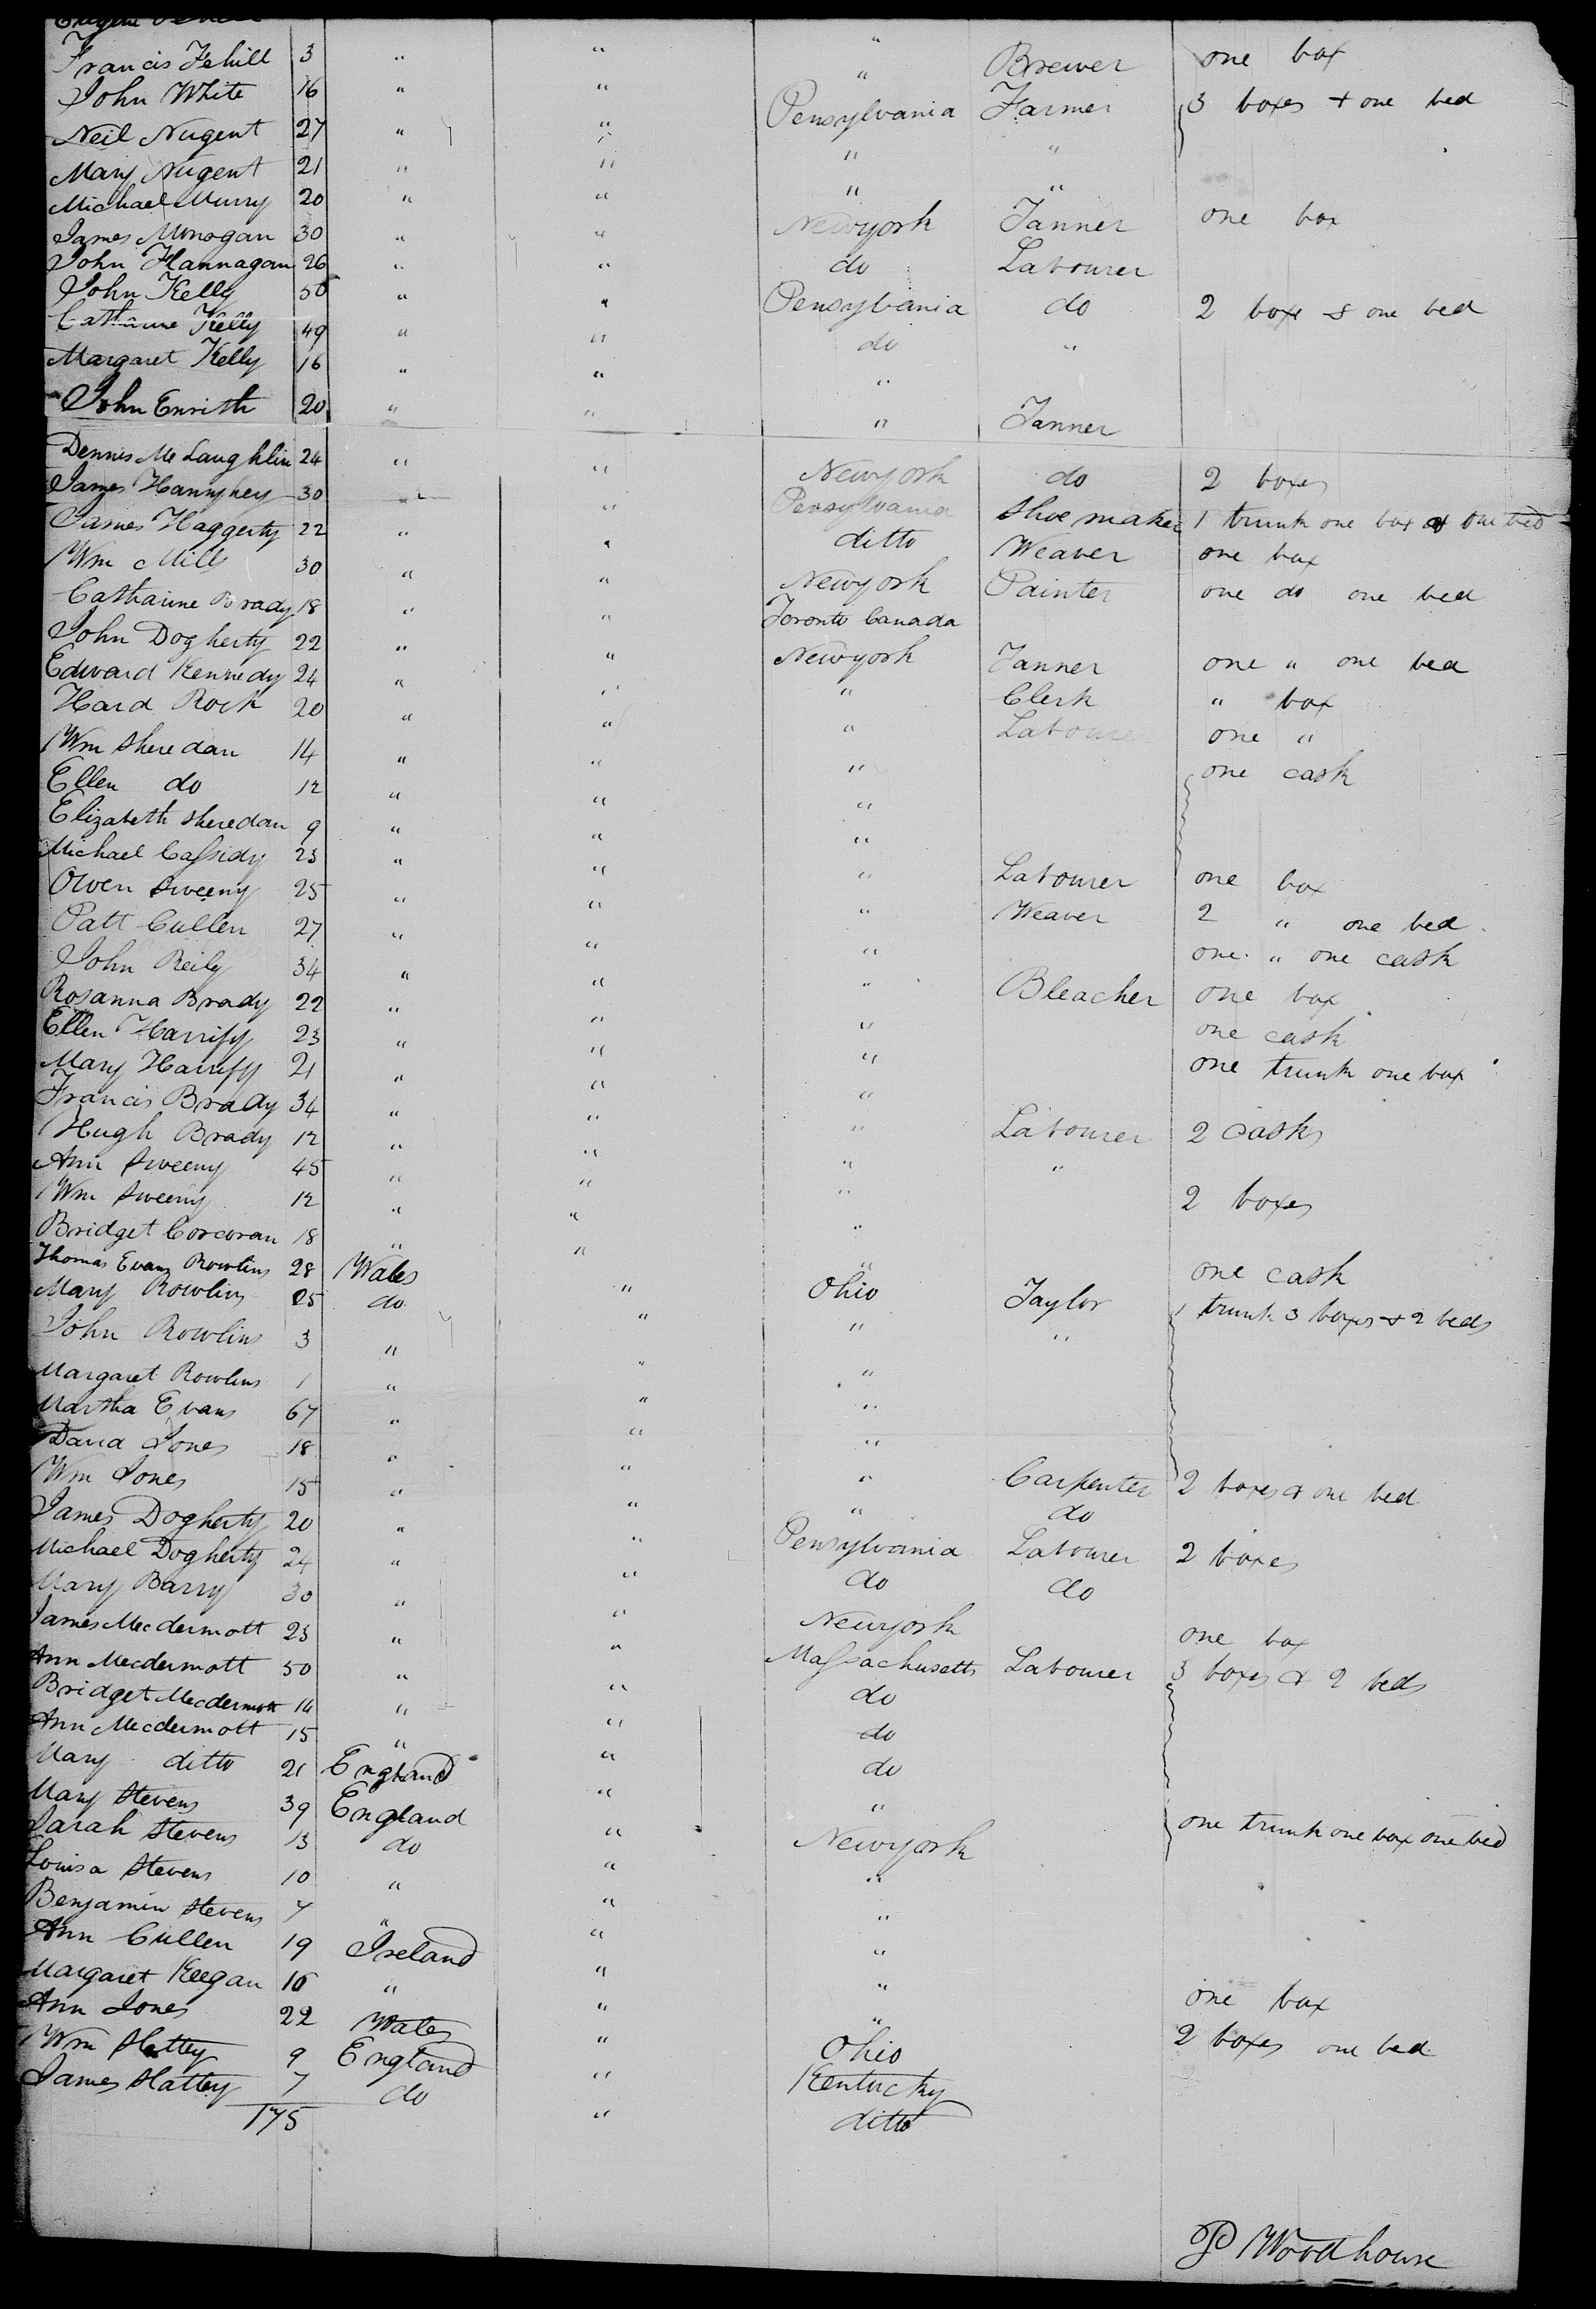 Francis Fehill 3 " " " Brewer one box
John White 16 " " Pensylvania Farmer 3 boxes + one bed
Neil Nugent 27 " " " "
Mary Nugent 21 " " " "
Michael Murry 20 " " Newyork Tanner one box
James Monogan 30 " " do Labourer
John Hannagan 26 " " Pensylvania do 2 boxe & one bed
John Kelly 50 " " do "
Catharine Kelly 49 " " "
Margaret Kelly 16 " " " Tanner
John Enrith 20 " "
Dennis Mc Laughlin 24 " " Newyork do 2 boxes
James Hannyhey 30 " " Pensylvania Shoe maker 1 trunk one box & one bed
James Haggerty 22 " " ditto Weaver one box
Wm Mills 30 " " Newyork Painter one do one bed
Catharine Brady 18 " " Toronto Canada
John Dogherty 22 " " Newyork Tanner one " one bed
Edward Kennedy 24 " " " Clerk " box
Hard Rock 20 " " " Labourer one "
Wm Sheredan 14 " " " one cask
Ellen do 12 " " "
Elizabeth Sheredan 9 " " "
Michael Cassidy 23 " " " Labourer one box
Owen Sweeny 25 " " " Weaver 2 " one bed
Patt Cullen 27 " " " one " one cask
John Reily 34 " " " Bleacher one box
Rosanna Brady 22 " " " one cask
Ellen Harrify 23 " " " one trunk one box
Mary Harrify 21 " " "
Francis Brady 34 " " " Labourer 2 casks
Hugh Brady 12 " " " "
Ann Sweeny 45 " " " 2 boxes
Wm Sweeny 12 " " "
Bridget Corcoran 18 " " " one cask
Thomas Evans Rowlins 28 Wales " Ohio Taylor 1 trunk 3 boxes + 2 beds
Mary Rowlins 25 do " " "
John Rowlins 3 " " "
Margaret Rowlins 1 " " "
Martha Evans 67 " " "
David Jones 18 " " " Carpenter 2 boxes & one bed
Wm Jones 15 " " " do
James Dogherty 20 " " Pensylvania Labourer 2 boxes
Michael Dogherty 24 " " do do
Mary Barry 30 " " Newyork one box
James Mecdermott 23 " " Massachusetts Labourer 3 boxes & 2 beds
Ann Mecdermott 50 " " do
Bridget Mecdermott 14 " " do
Ann Mecdermott 15 " " do
Mary ditto 21 England " "
Mary Stevens 39 England " Newyork one trunk one box one bed
Sarah Stevens 13 do " "
Louisa Stevens 10 " " "
Benjamin Stevens 7 " " "
Ann Cullen 19 Ireland " " one box
Margaret Keegan 16 " " " 2 boxes one bed
Ann Jones 22 Wales " Ohio
Wm Slattey 9 England " Kentucky
James Slattey 7 do " ditto
175
P Woodhouse